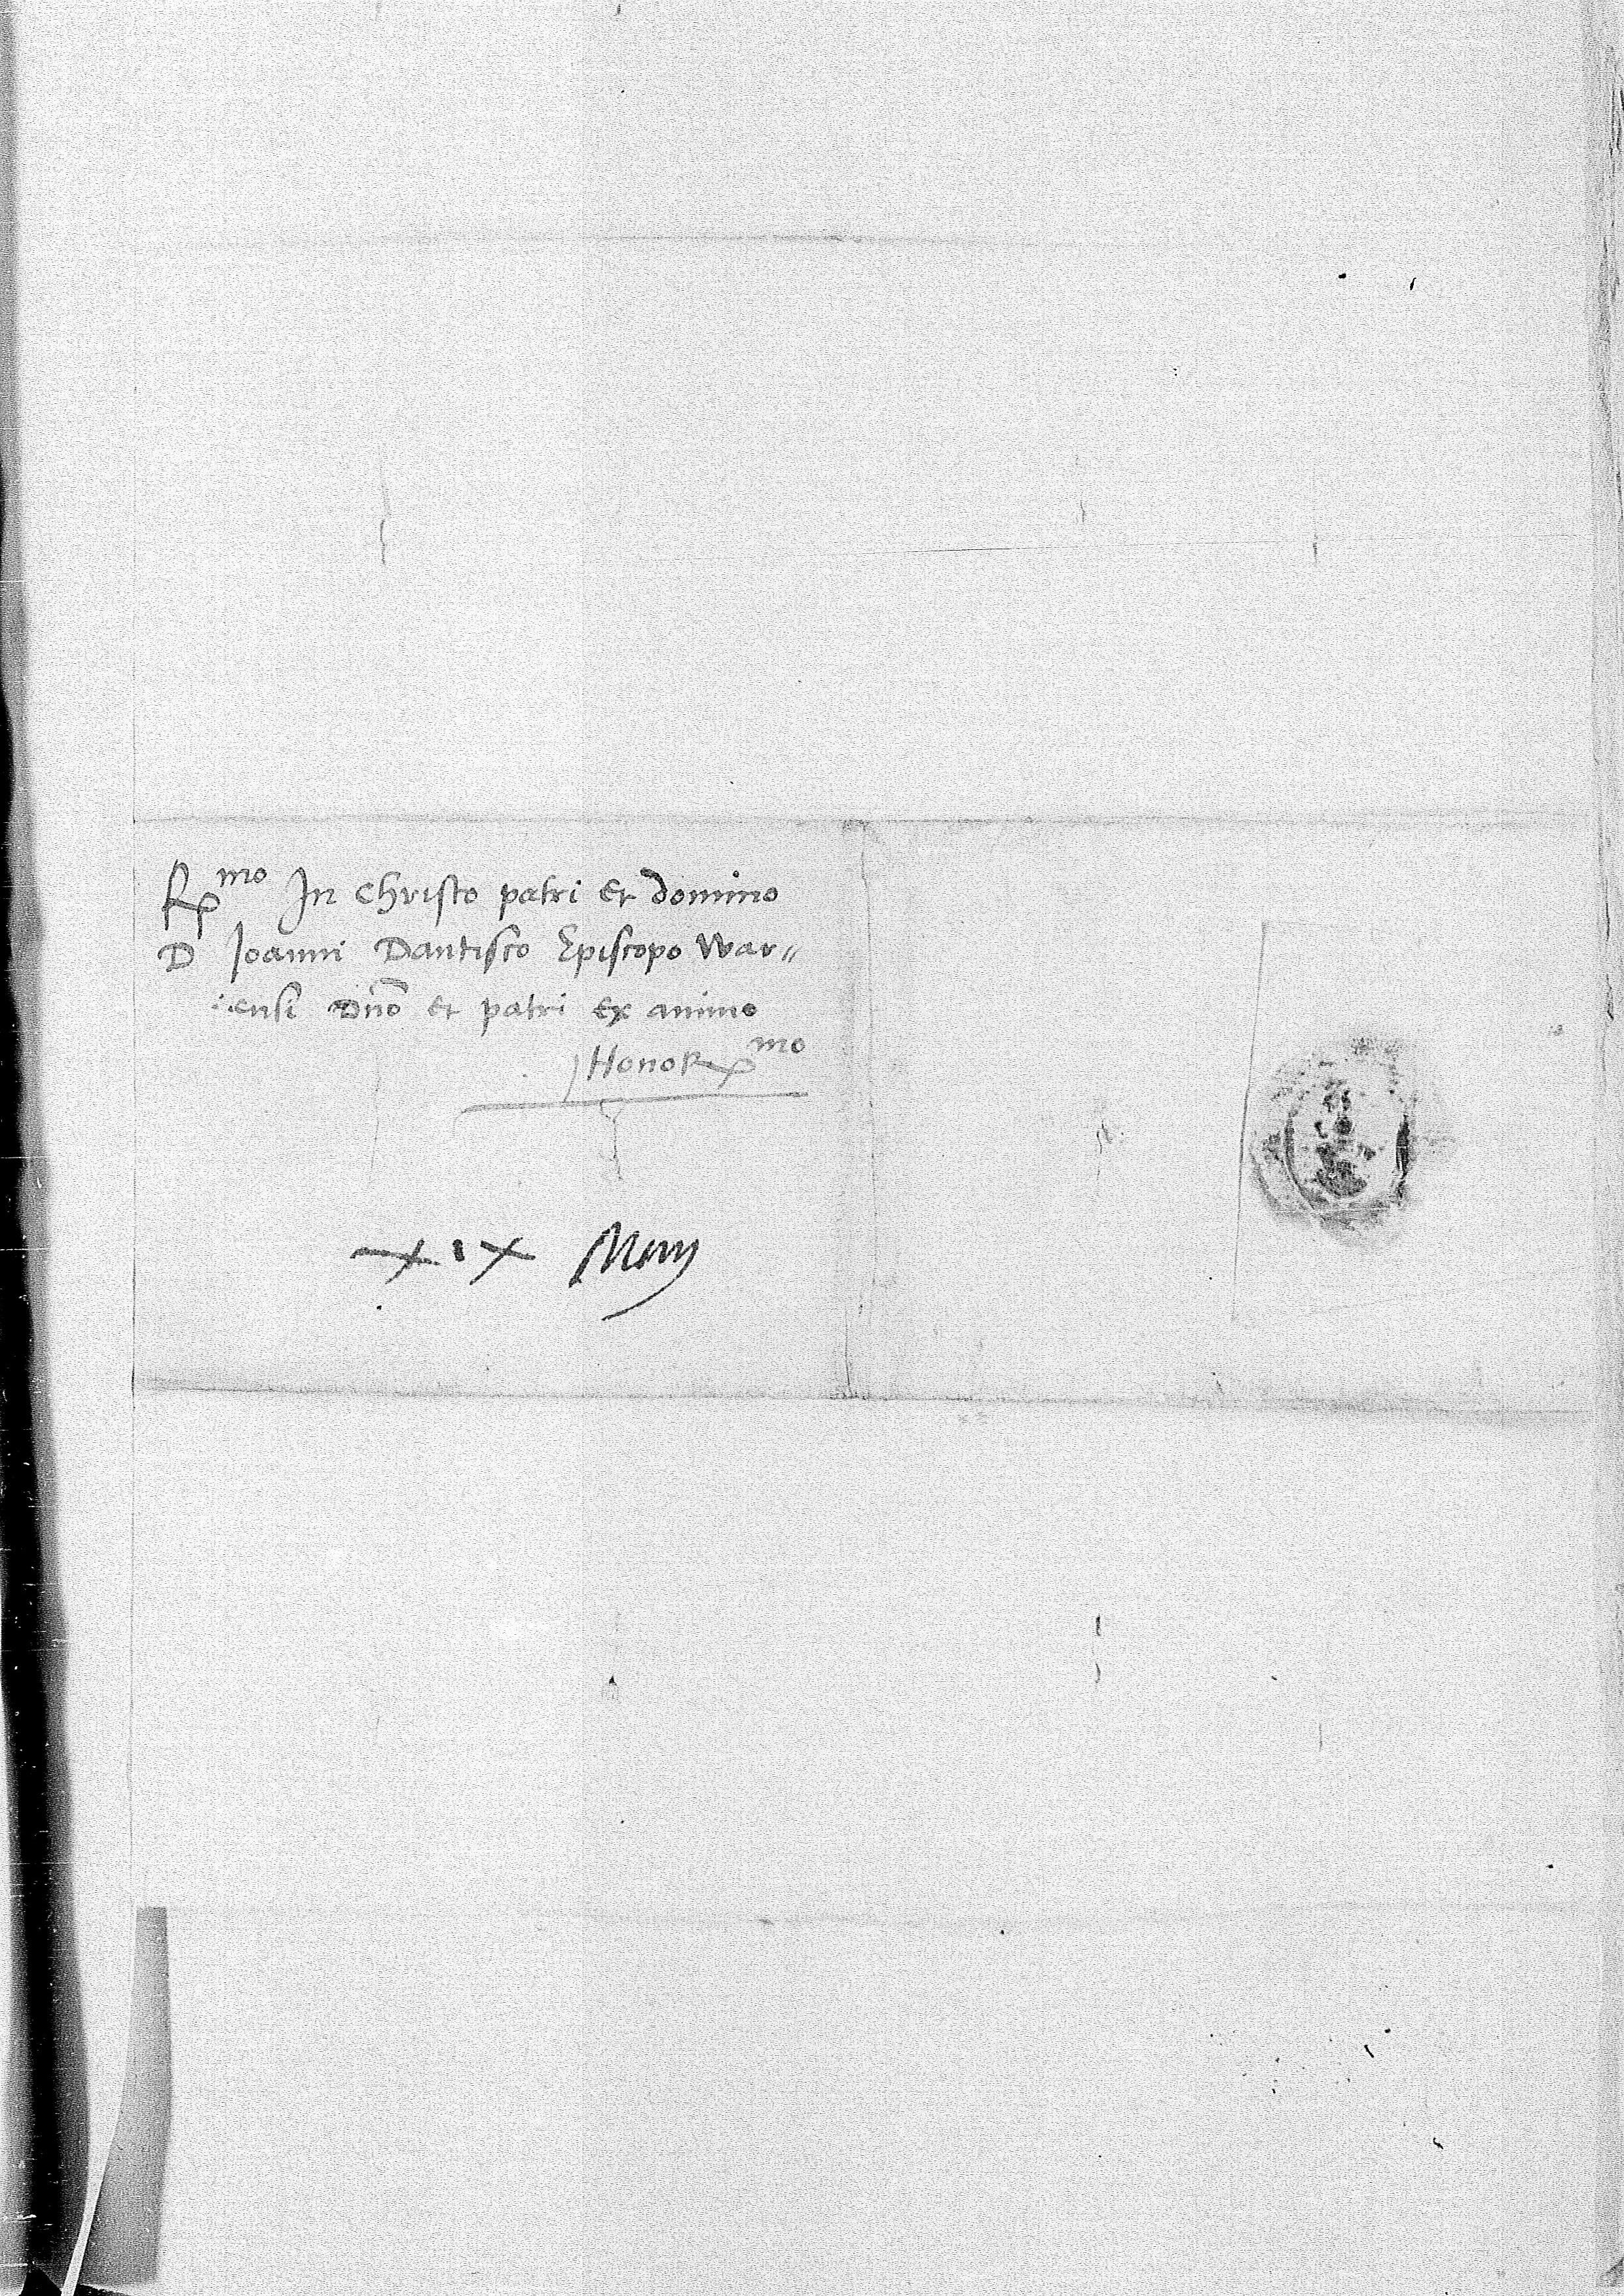 Rmo In Christo patri et domino
D Joanni Dantisco Episcopo War=
iensi Dno et patri ex animo
HonoRmo
xix